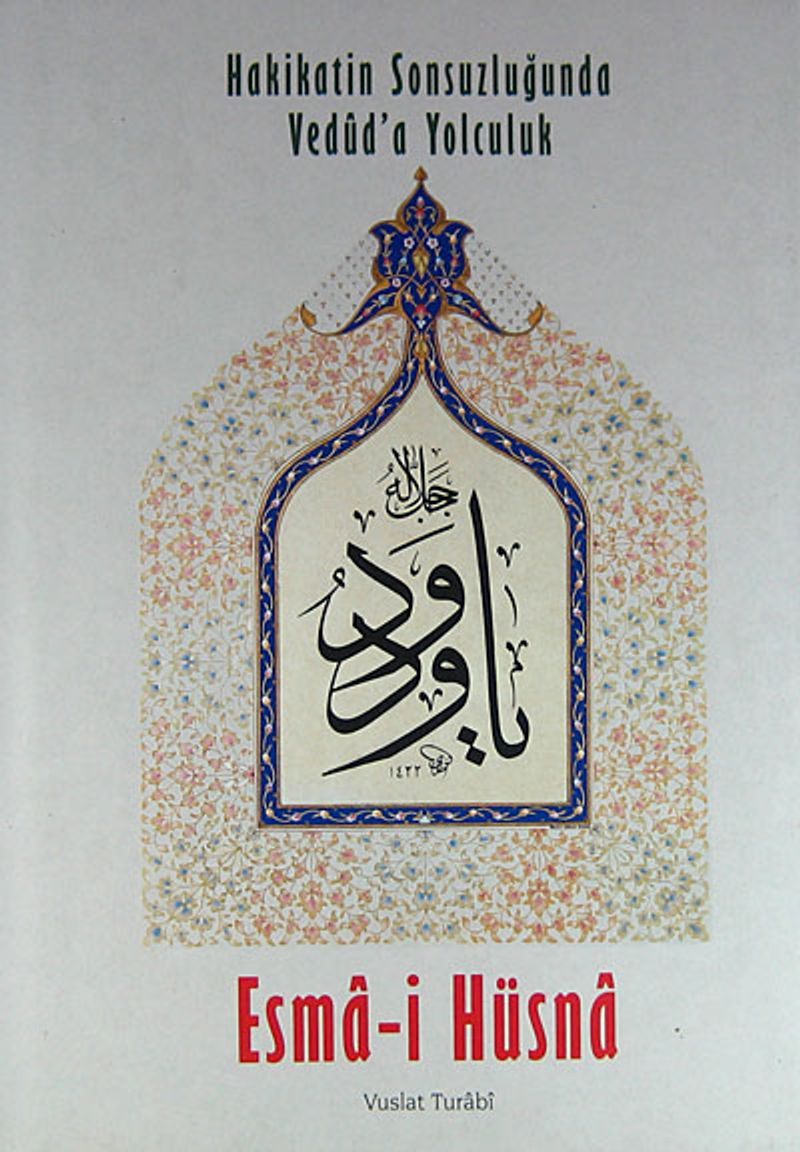 Hakikatin Sonsuzluğunda
Vedûd'a Yolculuk
جل جلاله
يا ودود
١٤٢٢
Esmâ-i Hüsnâ
Vuslat Turâbî